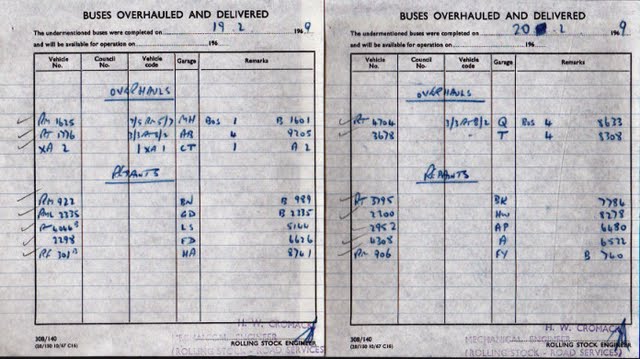 BUSES OVERHAULED AND DELIVERED
The undermentioned buses were completed on 19.2. 1969
and will be available for operation on 196
Vehicle No. Council No. Vehicle code Garage Remarks
OVERHAULS
RM 1625 7/5 RM 5/7 MH BOS 1 B 1601
RT 1776 AB 4 9705
XA 2 1 XA 1 CT 1 A 2
REPAINTS
RM 922 BN B 989
RML 2335 GD B 2335
LS 5144
2298 FD 6626
RF 301 HA 8761
308/140
H. W. CROMACK
MECHANICAL ENGINEER
(ROLLING STOCK - ROAD SERVICES)
ROLLING STOCK ENGINEER
BUSES OVERHAULED AND DELIVERED
The undermentioned buses were completed on 20.2. 1969
and will be available for operation on 196
Vehicle No. Council No. Vehicle code Garage Remarks
OVERHAULS
RT 4704 Q BOS 4 8633
3678 T 4 8308
REPAINTS
RT 3795 BK 7786
2200 HW 8278
2952 AP 6480
4308 A 6522
RM 706 FY B 740
308/140
H. W. CROMACK
MECHANICAL ENGINEER
(ROLLING STOCK - ROAD SERVICES)
ROLLING STOCK ENGINEER